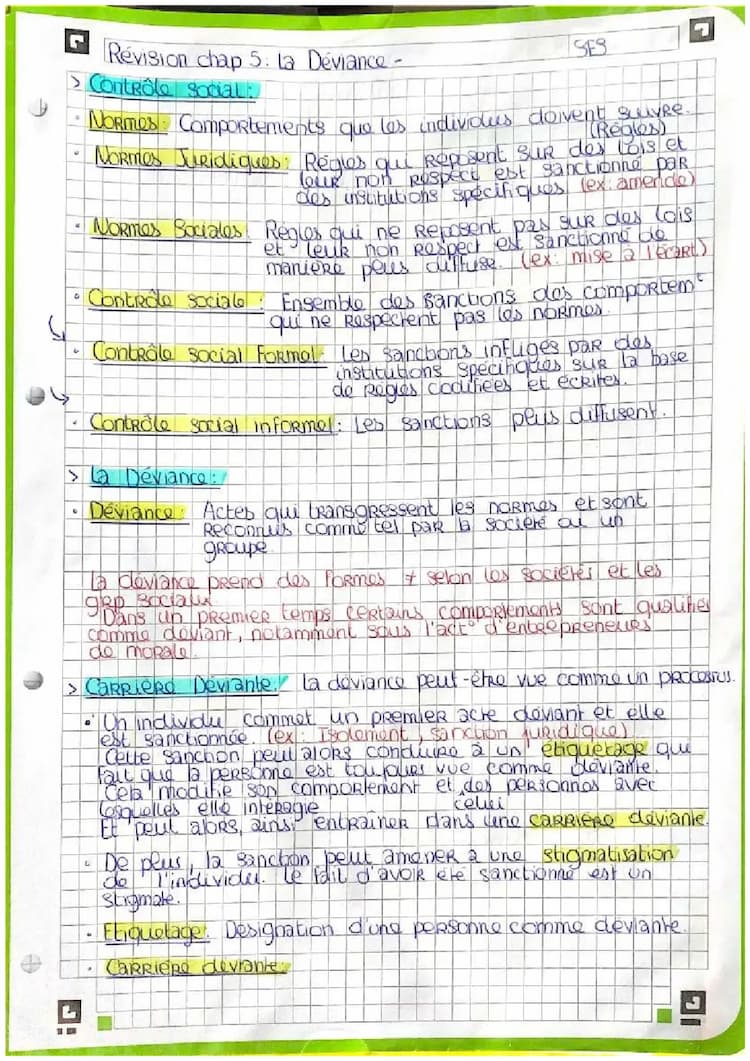 Révision chap 5: La Déviance -
SES
> Contrôle social:
• Normes: Comportements que les individus doivent suivre.
(Règles)
• Normes Juridiques: Règles qui reposent sur des lois et
leur non respect est sanctionné par
des institutions spécifiques (ex: amende)
• Normes Sociales: Règles qui ne reposent pas sur des lois
et leur non respect est sanctionné de
manière plus diffuse. (ex: mise à l'écart)
• Contrôle sociale: Ensemble des sanctions des comportemt
qui ne respectent pas les normes.
• Contrôle social Formel: Les sanctions infligés par des
institutions spécifiques sur la base
de règles codifiées et écrites.
• Contrôle social informel: Les sanctions plus diffusent.
> La Déviance:
• Déviance: Actes qui transgressent les normes et sont
reconnus comme tel par la société ou un
groupe
La déviance prend des formes ≠ selon les sociétés et les
grp sociaux
Dans un premier temps certains comportements sont qualifiés
comme déviant, notamment sous l'act° d'entrepreneurs
de morale.
> Carrière Déviante: La déviance peut-être vue comme un processus.
• Un individu commet un premier acte déviant et elle
est sanctionnée. (ex: Isolement, sanction juridique)
Cette sanction peut alors conduire à un étiquetage qui
fait que la personne est toujours vue comme déviante.
Cela modifie son comportement et des personnes avec
celui
lesquelles elle interagie
Et peut alors, ainsi entraîner dans une carrière déviante.
• De plus, la sanction peut amener à une stigmatisation
de l'individu. Le fait d'avoir été sanctionné est un
stigmate.
• Etiquetage: Désignation d'une personne comme déviante.
• Carrière déviante: